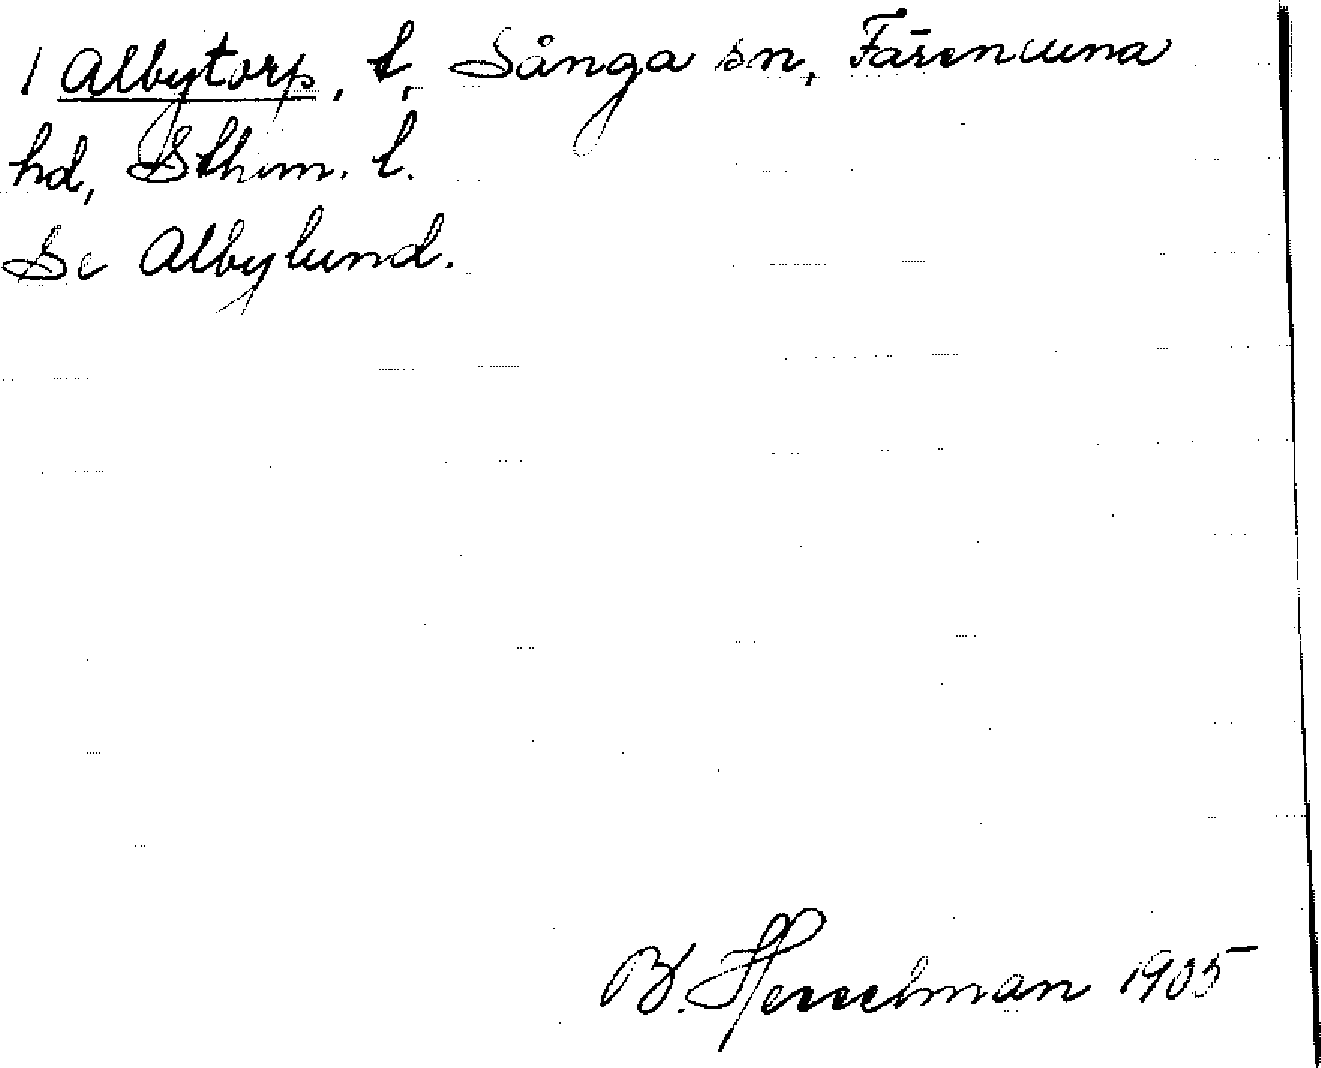 1 Albytorp, t, Sånga sn, Färentuna
hd, Sthlm. l.
Se Albylund.
B. Hesselman 1905